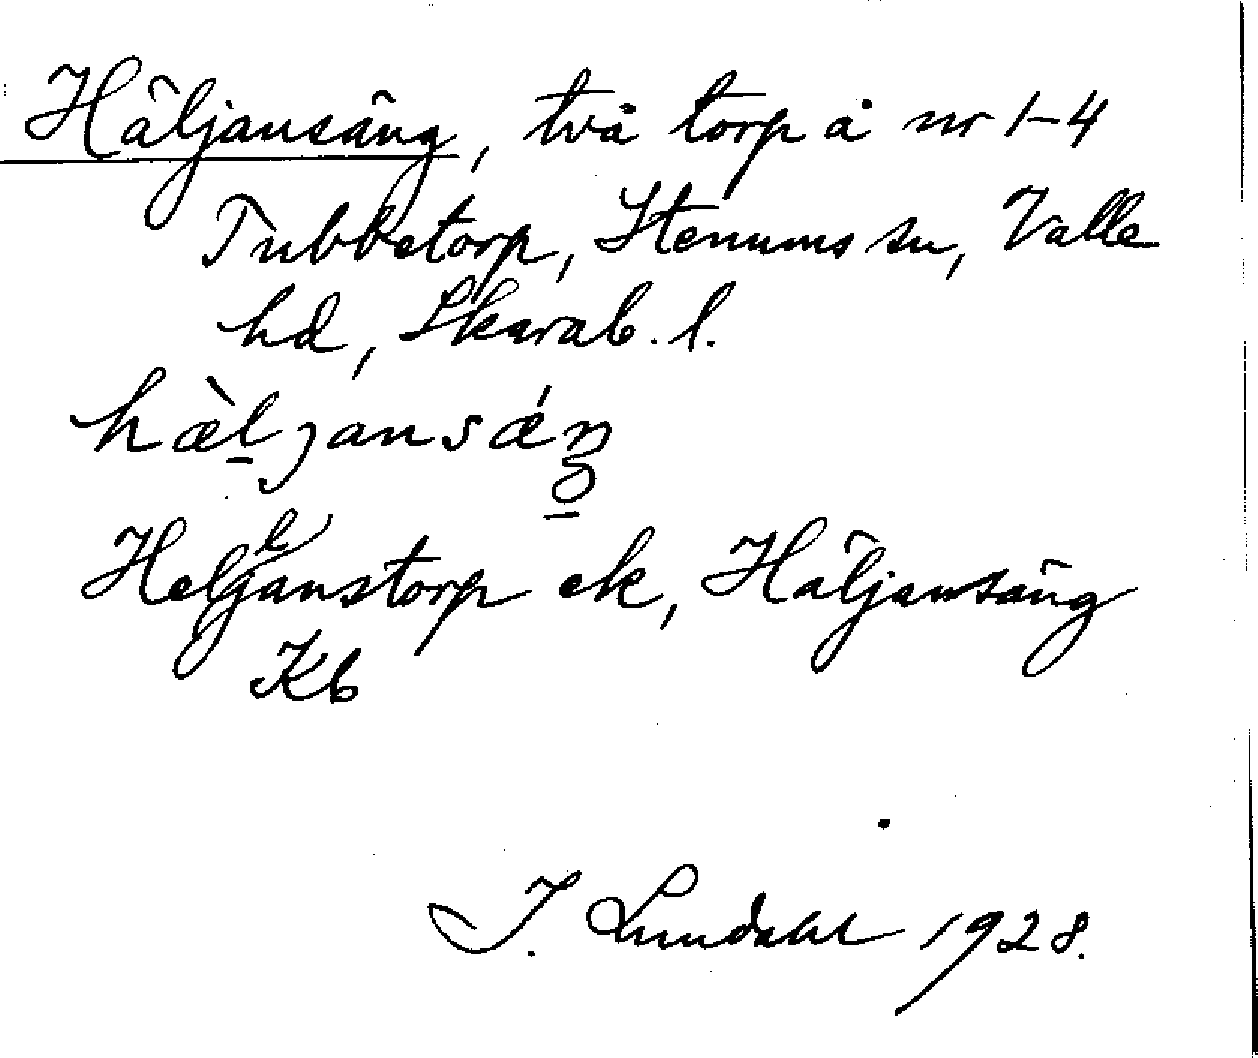 Häljansäng, två torp å nr 1-4
Tubbetorp, Stenums sn, Valle
hd, Skarab. l.
hæ̀ḻjansǽŋ̱
Helgjanstorp ek, Häljansäng
Kb
I. Lundahl 1928.